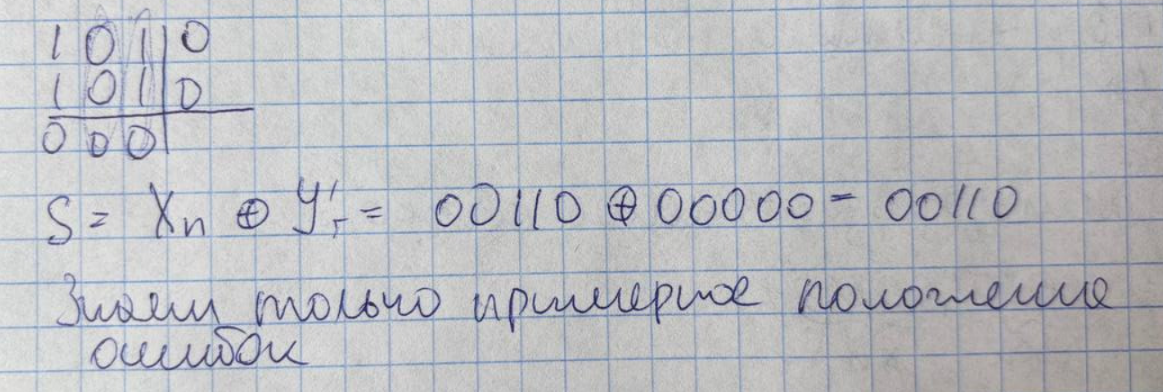 1 0 1 | 0
1 0 1 | 0
0 0 0 |
S = Xп ⊕ У'г = 00110 ⊕ 00000 = 00110
Знаем только примерное положение
ошибок